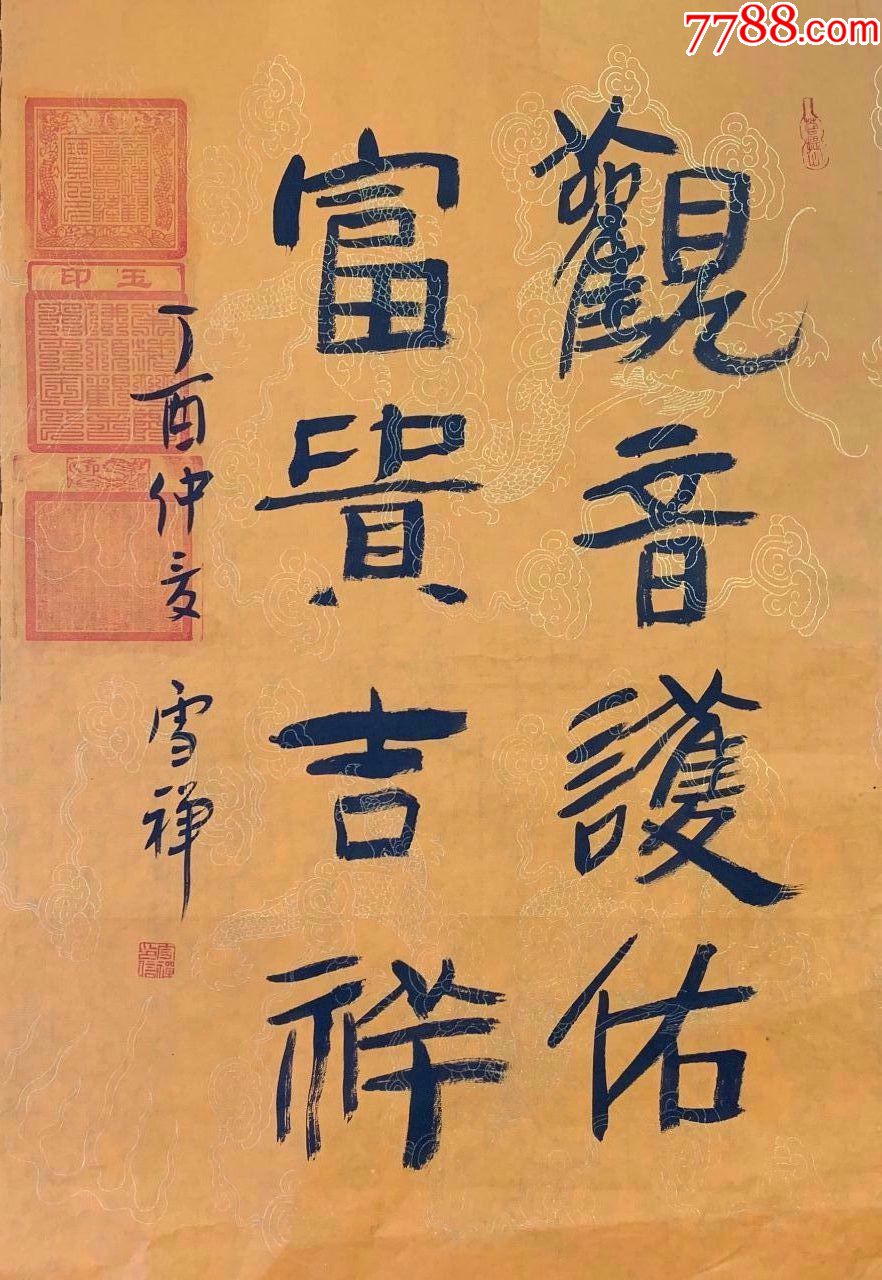 7788.com
觀音護佑
富貴吉祥
丁酉仲夏 雪禅
玉印